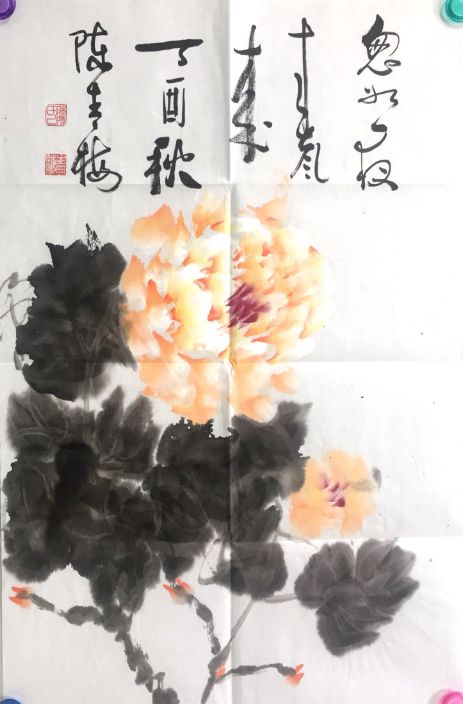 忽如一夜
春风
来
丁酉秋
陈青梅